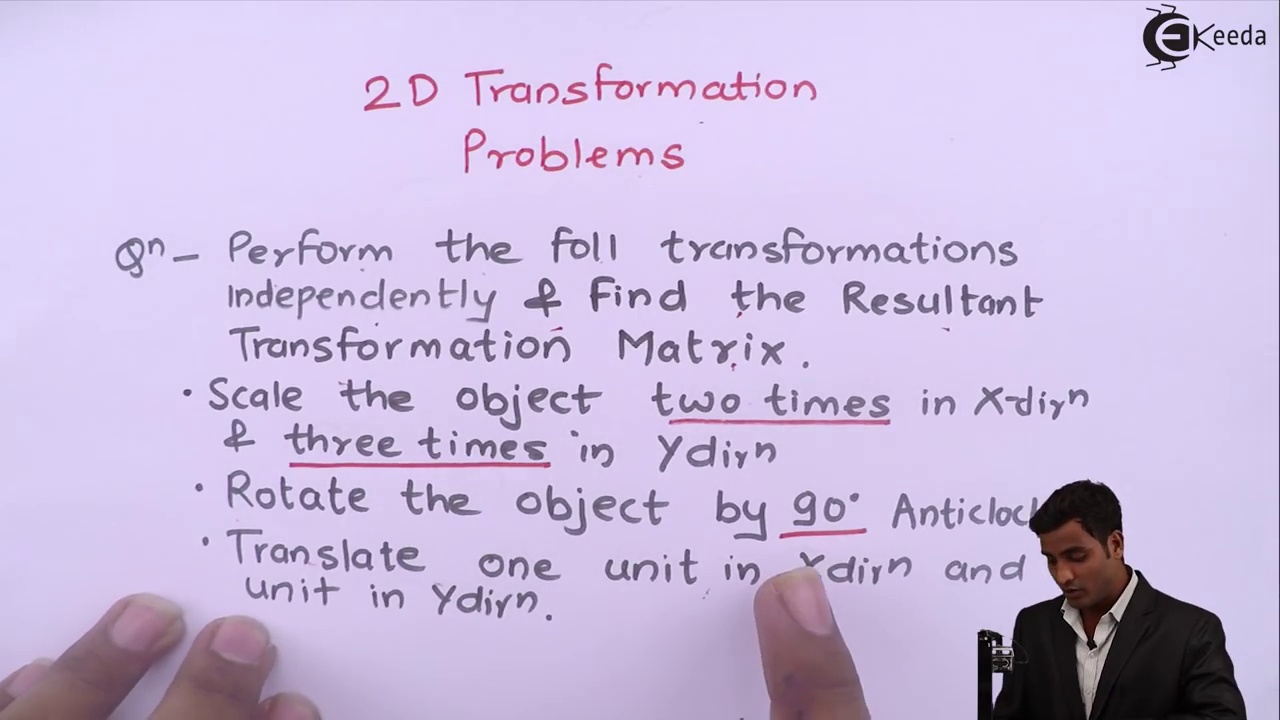 EKeeda
2D Transformation
Problems
Qn - Perform the foll transformations
Independently & Find the Resultant
Transformation Matrix.
• Scale the object two times in X-dirn
& three times in Ydirn
• Rotate the object by 90°
• Translate one unit in dirn and
unit in Ydirn.